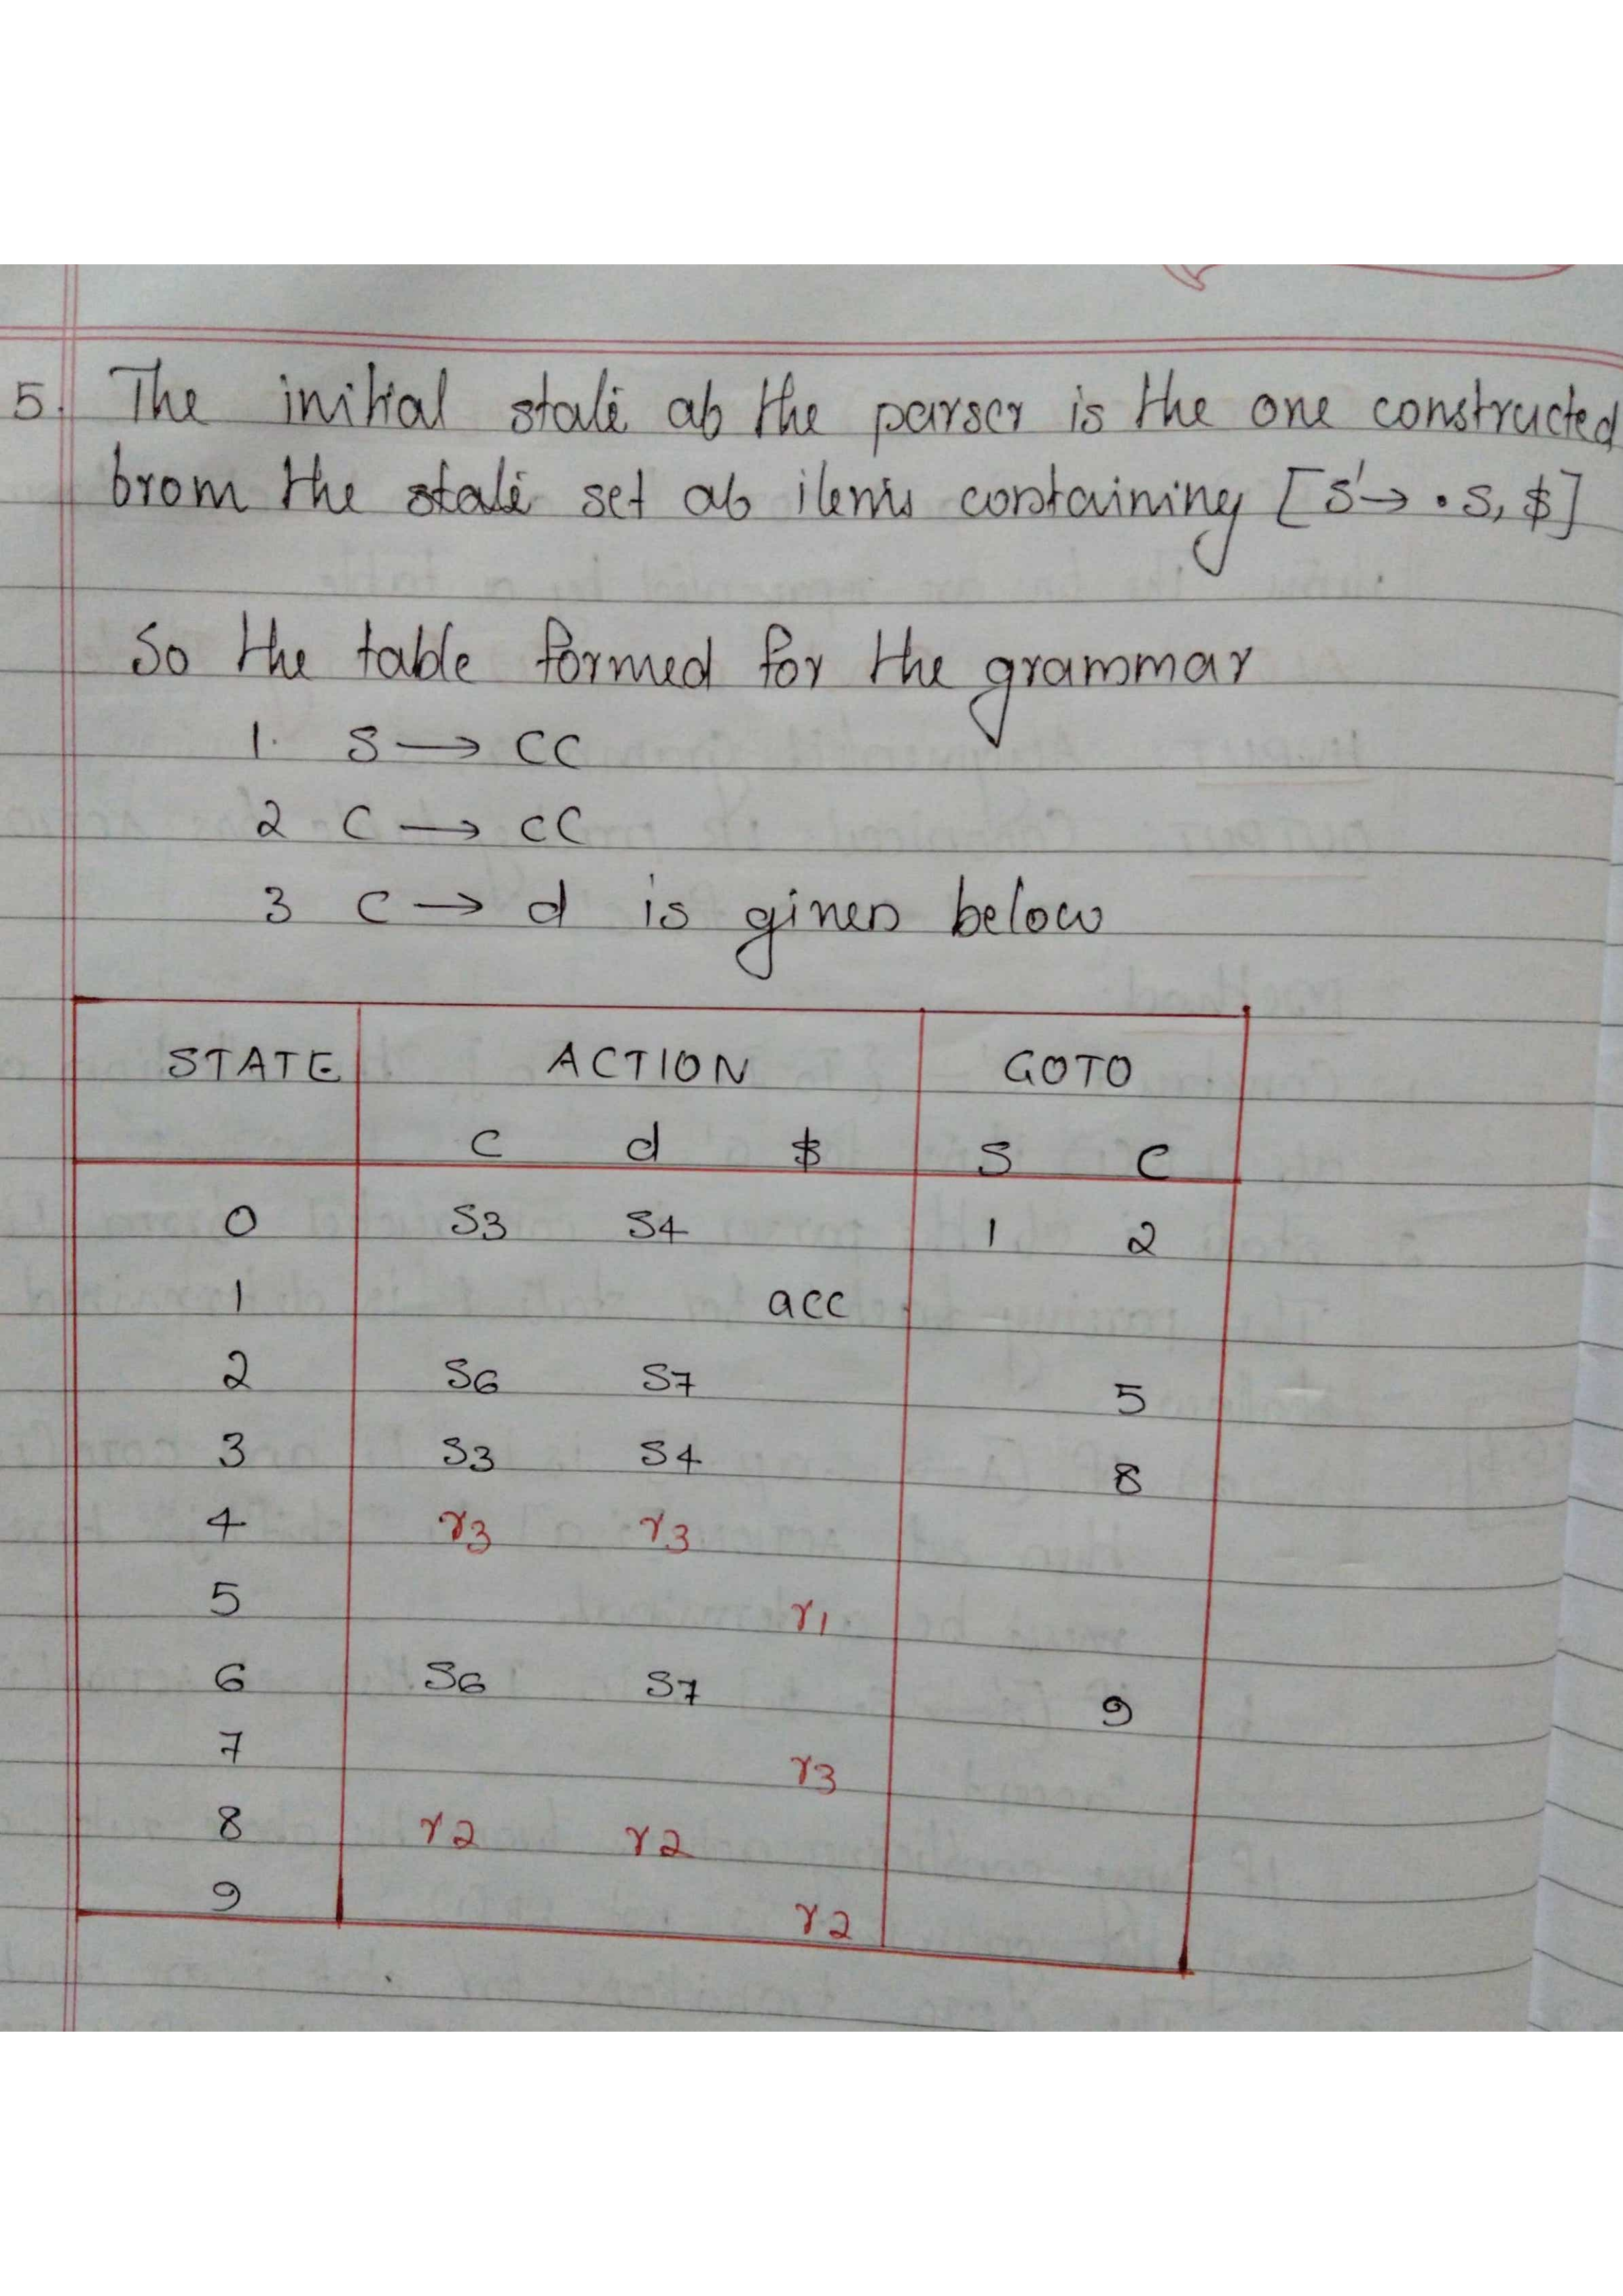 5. The initial state of the parser is the one constructed
from the state set of items containing [S'→ •S, $]
So the table formed for the grammar
1. S → CC
2 C → cC
3 C → d is given below
STATE ACTION GOTO
c d $ S C
0 S3 S4 1 2
1 acc
2 S6 S7 5
3 S3 S4 8
4 r3 r3
5 r1
6 S6 S7 9
7 r3
8 r2 r2
9 r2